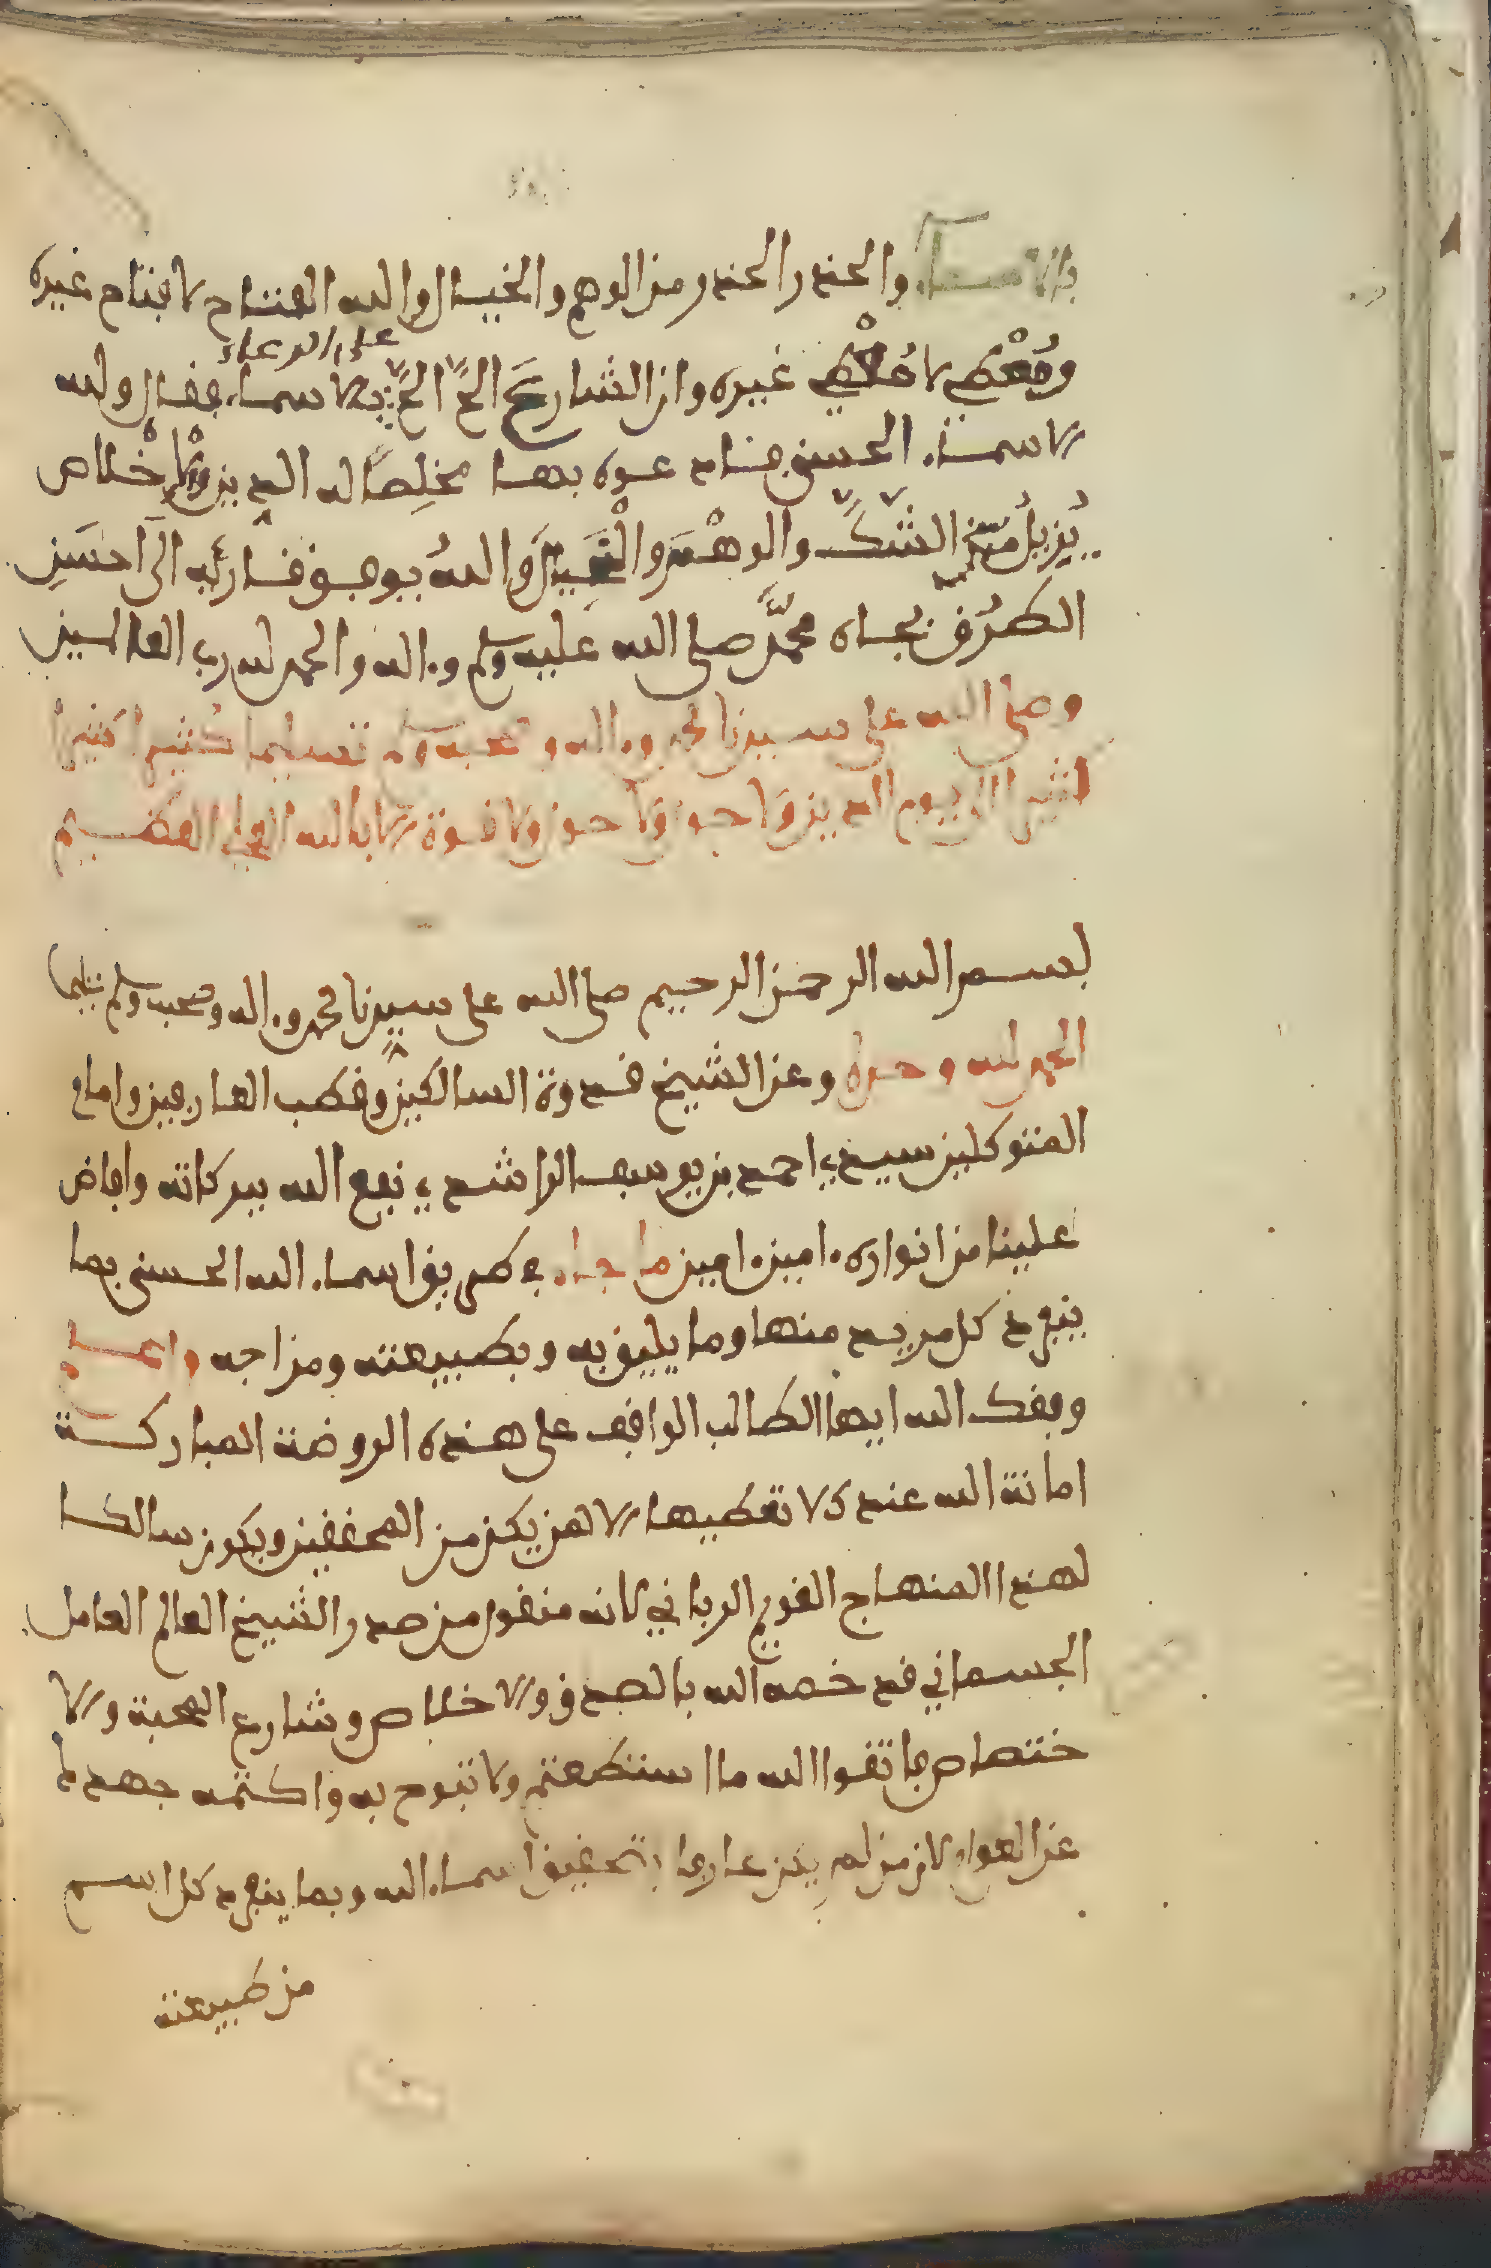 بالاسماء والحذر الحذر من الوهم والخيال والله الفتاح لا فتاح غيره
ومُعْطِي لا مُعْطِي غيره وان الشارع الحّ الحّ بالاسماء فقال ولله
على الدعاء
الاسماء الحسنى فادعوه بها مخلِصًا له الدين والْإخْلاص
يُزيلُ منك الشكَّ والوهْمَ والْخَيالَ واللهُ يوفقنا وإياك الى احسَنِ
الطرُقِ بجاه محمَّدٍ صلى الله عليه وسلم وءاله والحمد لله رب العالمين
وصلى الله على سيدنا محمد وءاله وصحبه وسلم تسليما كثيرا كثيرا
كثيرا الى يوم الدين ولا حول ولا قوة الا بالله العلي العظيم
بسم الله الرحمن الرحيم صلى الله على سيدنا محمد وءاله وصحبه وسلم تسليما
الحمد لله وحده وعن الشيخ قدوة السالكين وقطب العارفين وامام
المتوكلين سيدي احمد بن يوسف الراشدي نفع الله ببركاته وافاض
علينا من انواره ءامين ءامين ما جاء في طريق اسماء الله الحسنى بما
ينفرد كل مريد منها وما يليق به وبطبيعته ومزاجه واعلم
وفقك الله ايها الطالب الواقف على هذه الروضة المباركة
امانة الله عندك لا تعطيها الا لمن يكن من المحققين ويكون سالكا
لهذا المنهاج القويم الرباني لانه منقول من صدر الشيخ العالم العامل
الجسماني قد خصه الله بالصدق والاخلاص وشارع المحبة والا
ختصاص فاتقوا الله ما استطعتم ولا تبوح به واكتمه جهدك
عن العوام لان من لم يكن عارفا بتحقيق اسماء الله وبما ينفرد كل اسم
من طبيعته